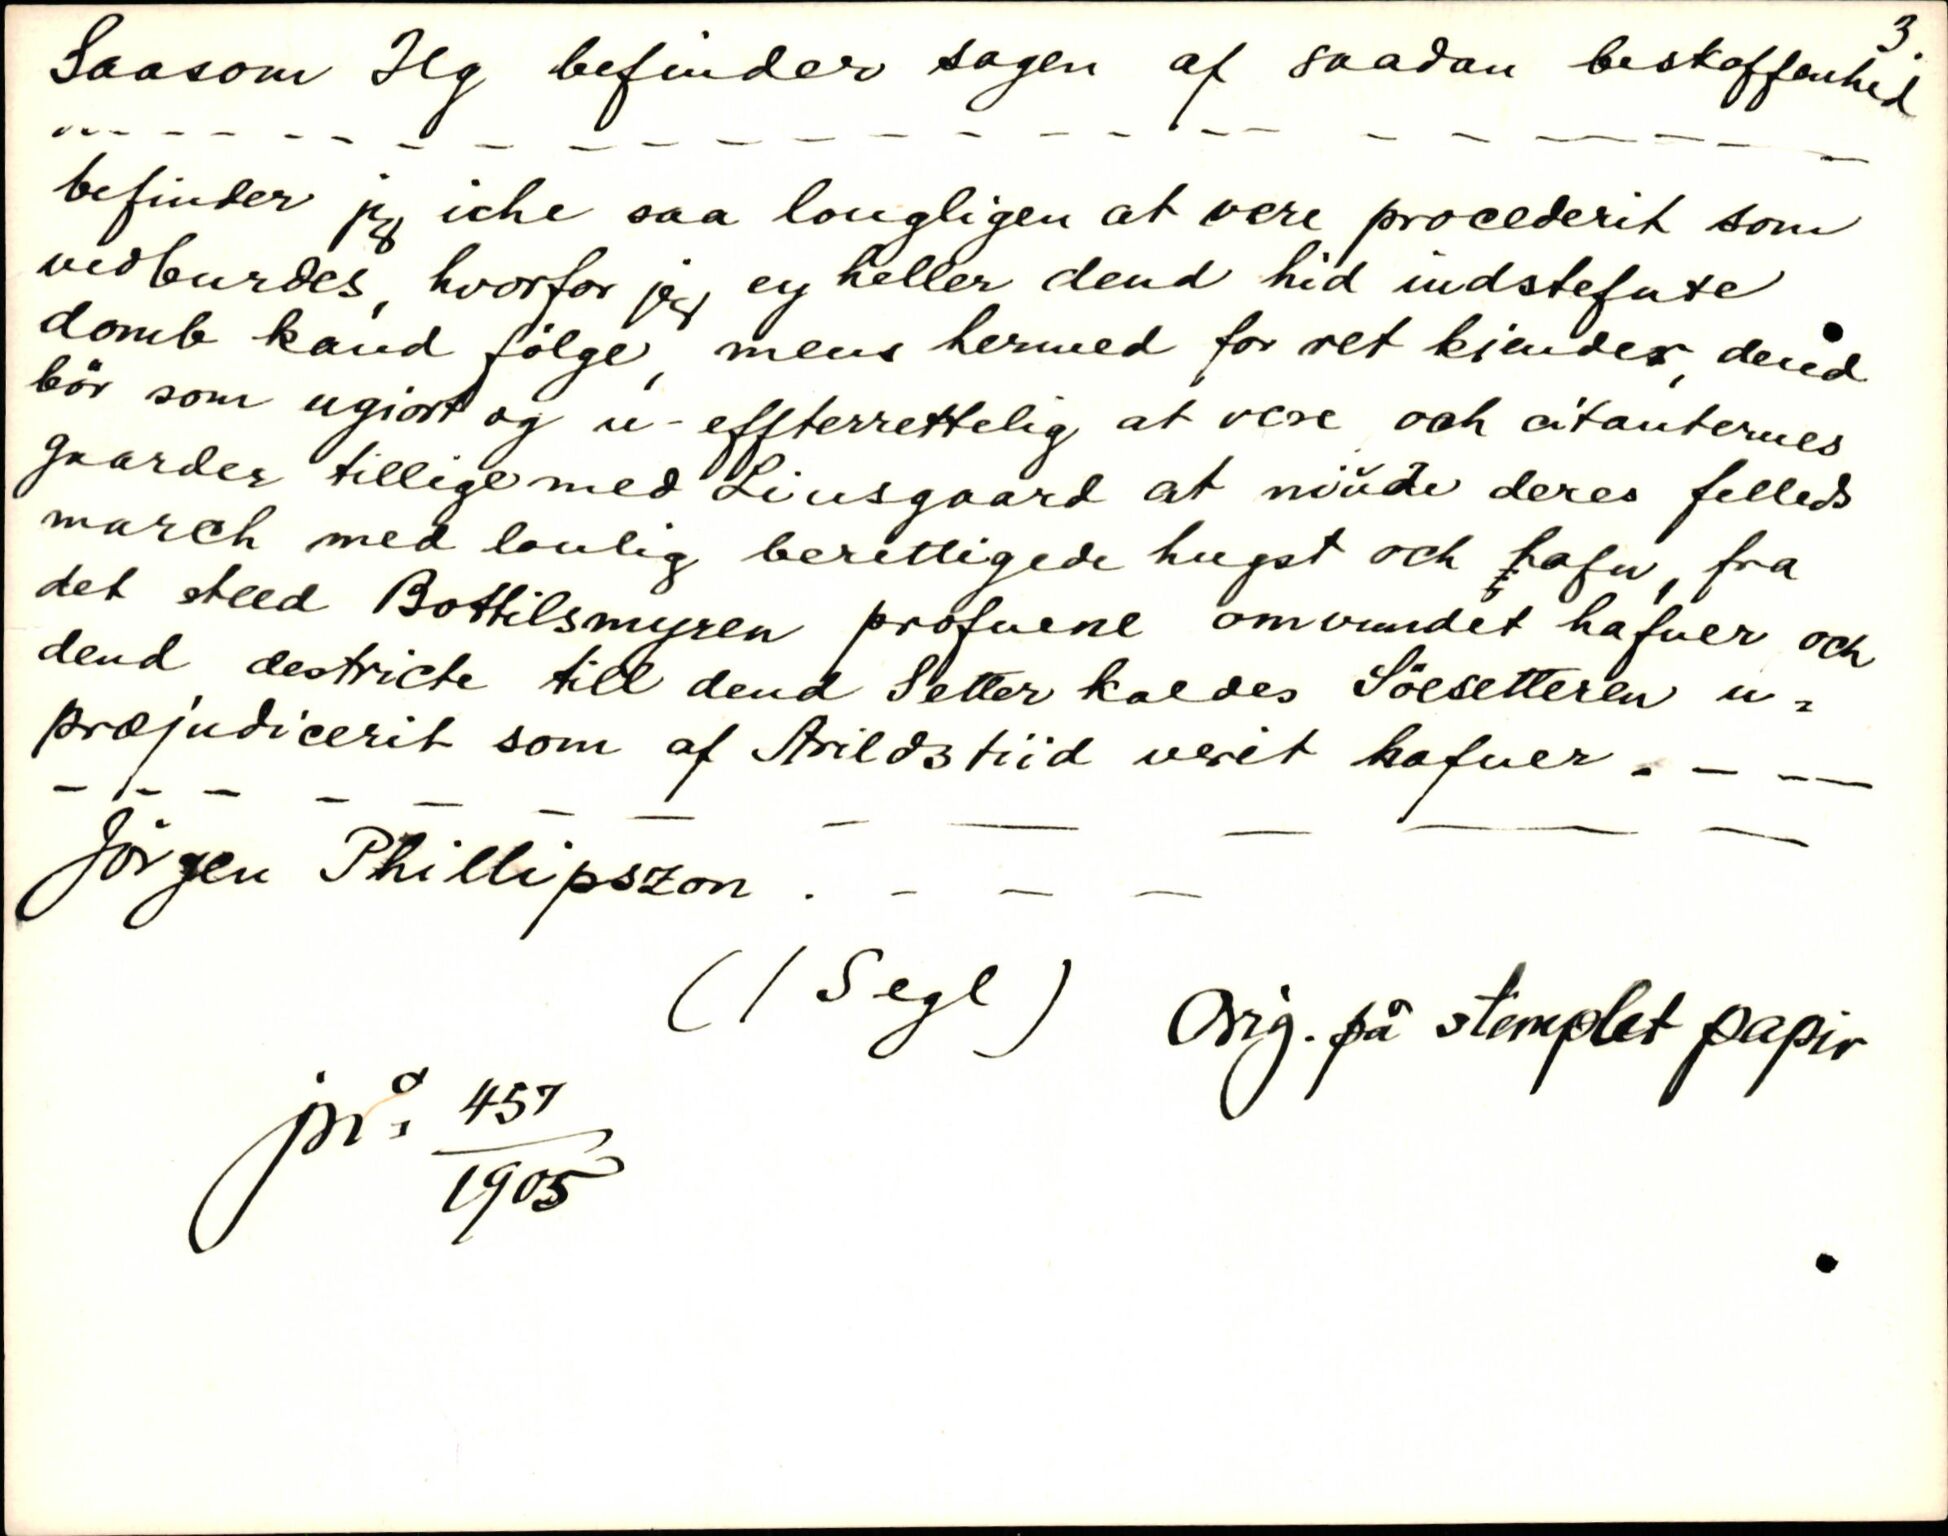 3.
Saasom Jeg befinder sagen af saadan beskaffenhed
befinder jeg iche saa lougligen at vere procederit som
vedburdes, hvorfor jeg ey heller dend hid indstefnte
domb kand følge, mens hermed for ret kjendes, dend
bör som ugiort og u-effterrettelig at vere och citanternes
gaarder tillige med Linsgaard at niüde deres felleds
march med loulig berettigede hugst och hafn, fra
det steed Bottilsmyren profuene omvundet hafuer och
dend destricte till dend Setter kaldes Söesetteren u=
præjudicerit som af Arildstiid verit hafuer. - - -
Jörgen Phillipszon. - - -
(1 Segl)
Orig. på stemplet papir
457
1905